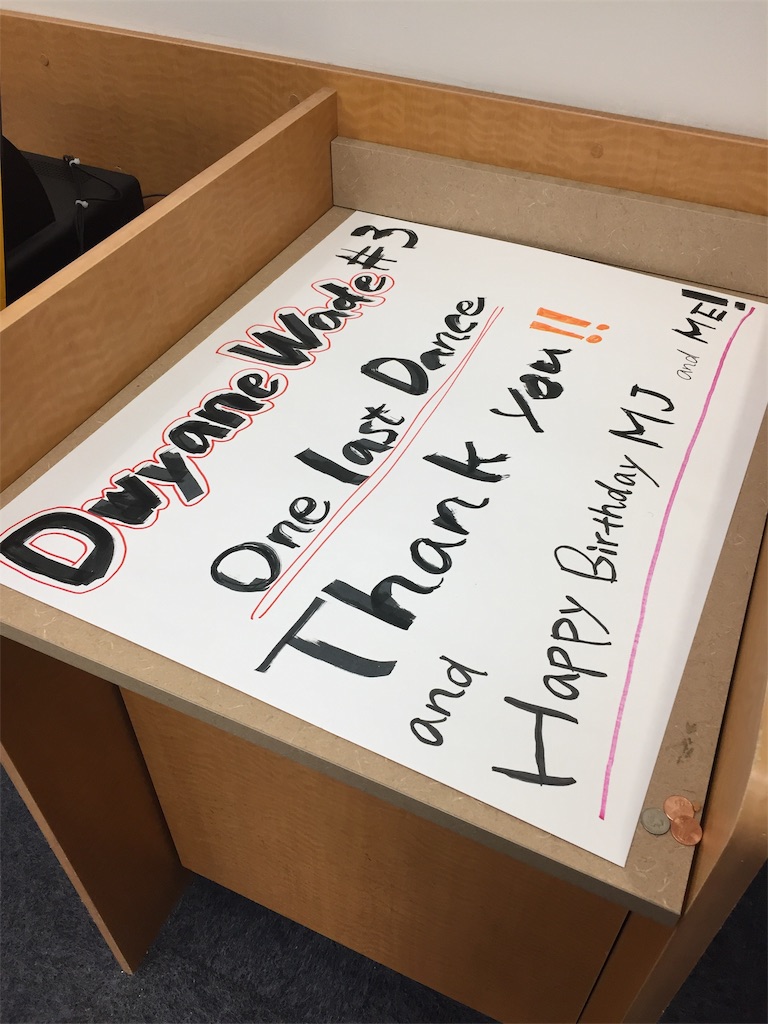 Dwyane Wade #3
One last Dance
Thank you!!
and
Happy Birthday MJ and ME!